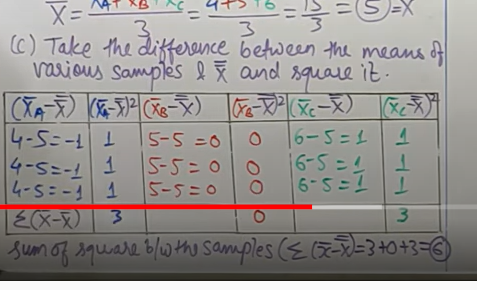 X̿ = X̄A + X̄B + X̄C / 3 = 4+5+6 / 3 = 15 / 3 = 5 = X̿
(C) Take the difference between the means of
various samples & X̿ and square it.
(X̄A-X̿) (X̄A-X̿)² (X̄B-X̿) (X̄B-X̿)² (X̄C-X̿) (X̄C-X̿)²
4-5=-1 1 5-5=0 0 6-5=1 1
4-5=-1 1 5-5=0 0 6-5=1 1
4-5=-1 1 5-5=0 0 6-5=1 1
Σ(X̄-X̿) 3 0 3
sum of square b/w the samples (Σ(X̄-X̿)=3+0+3=6